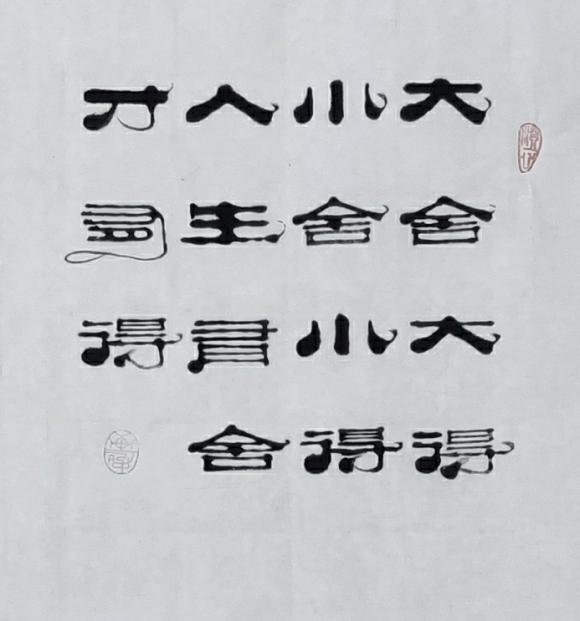 大舍大得
小舍小得
人生有舍
才有得